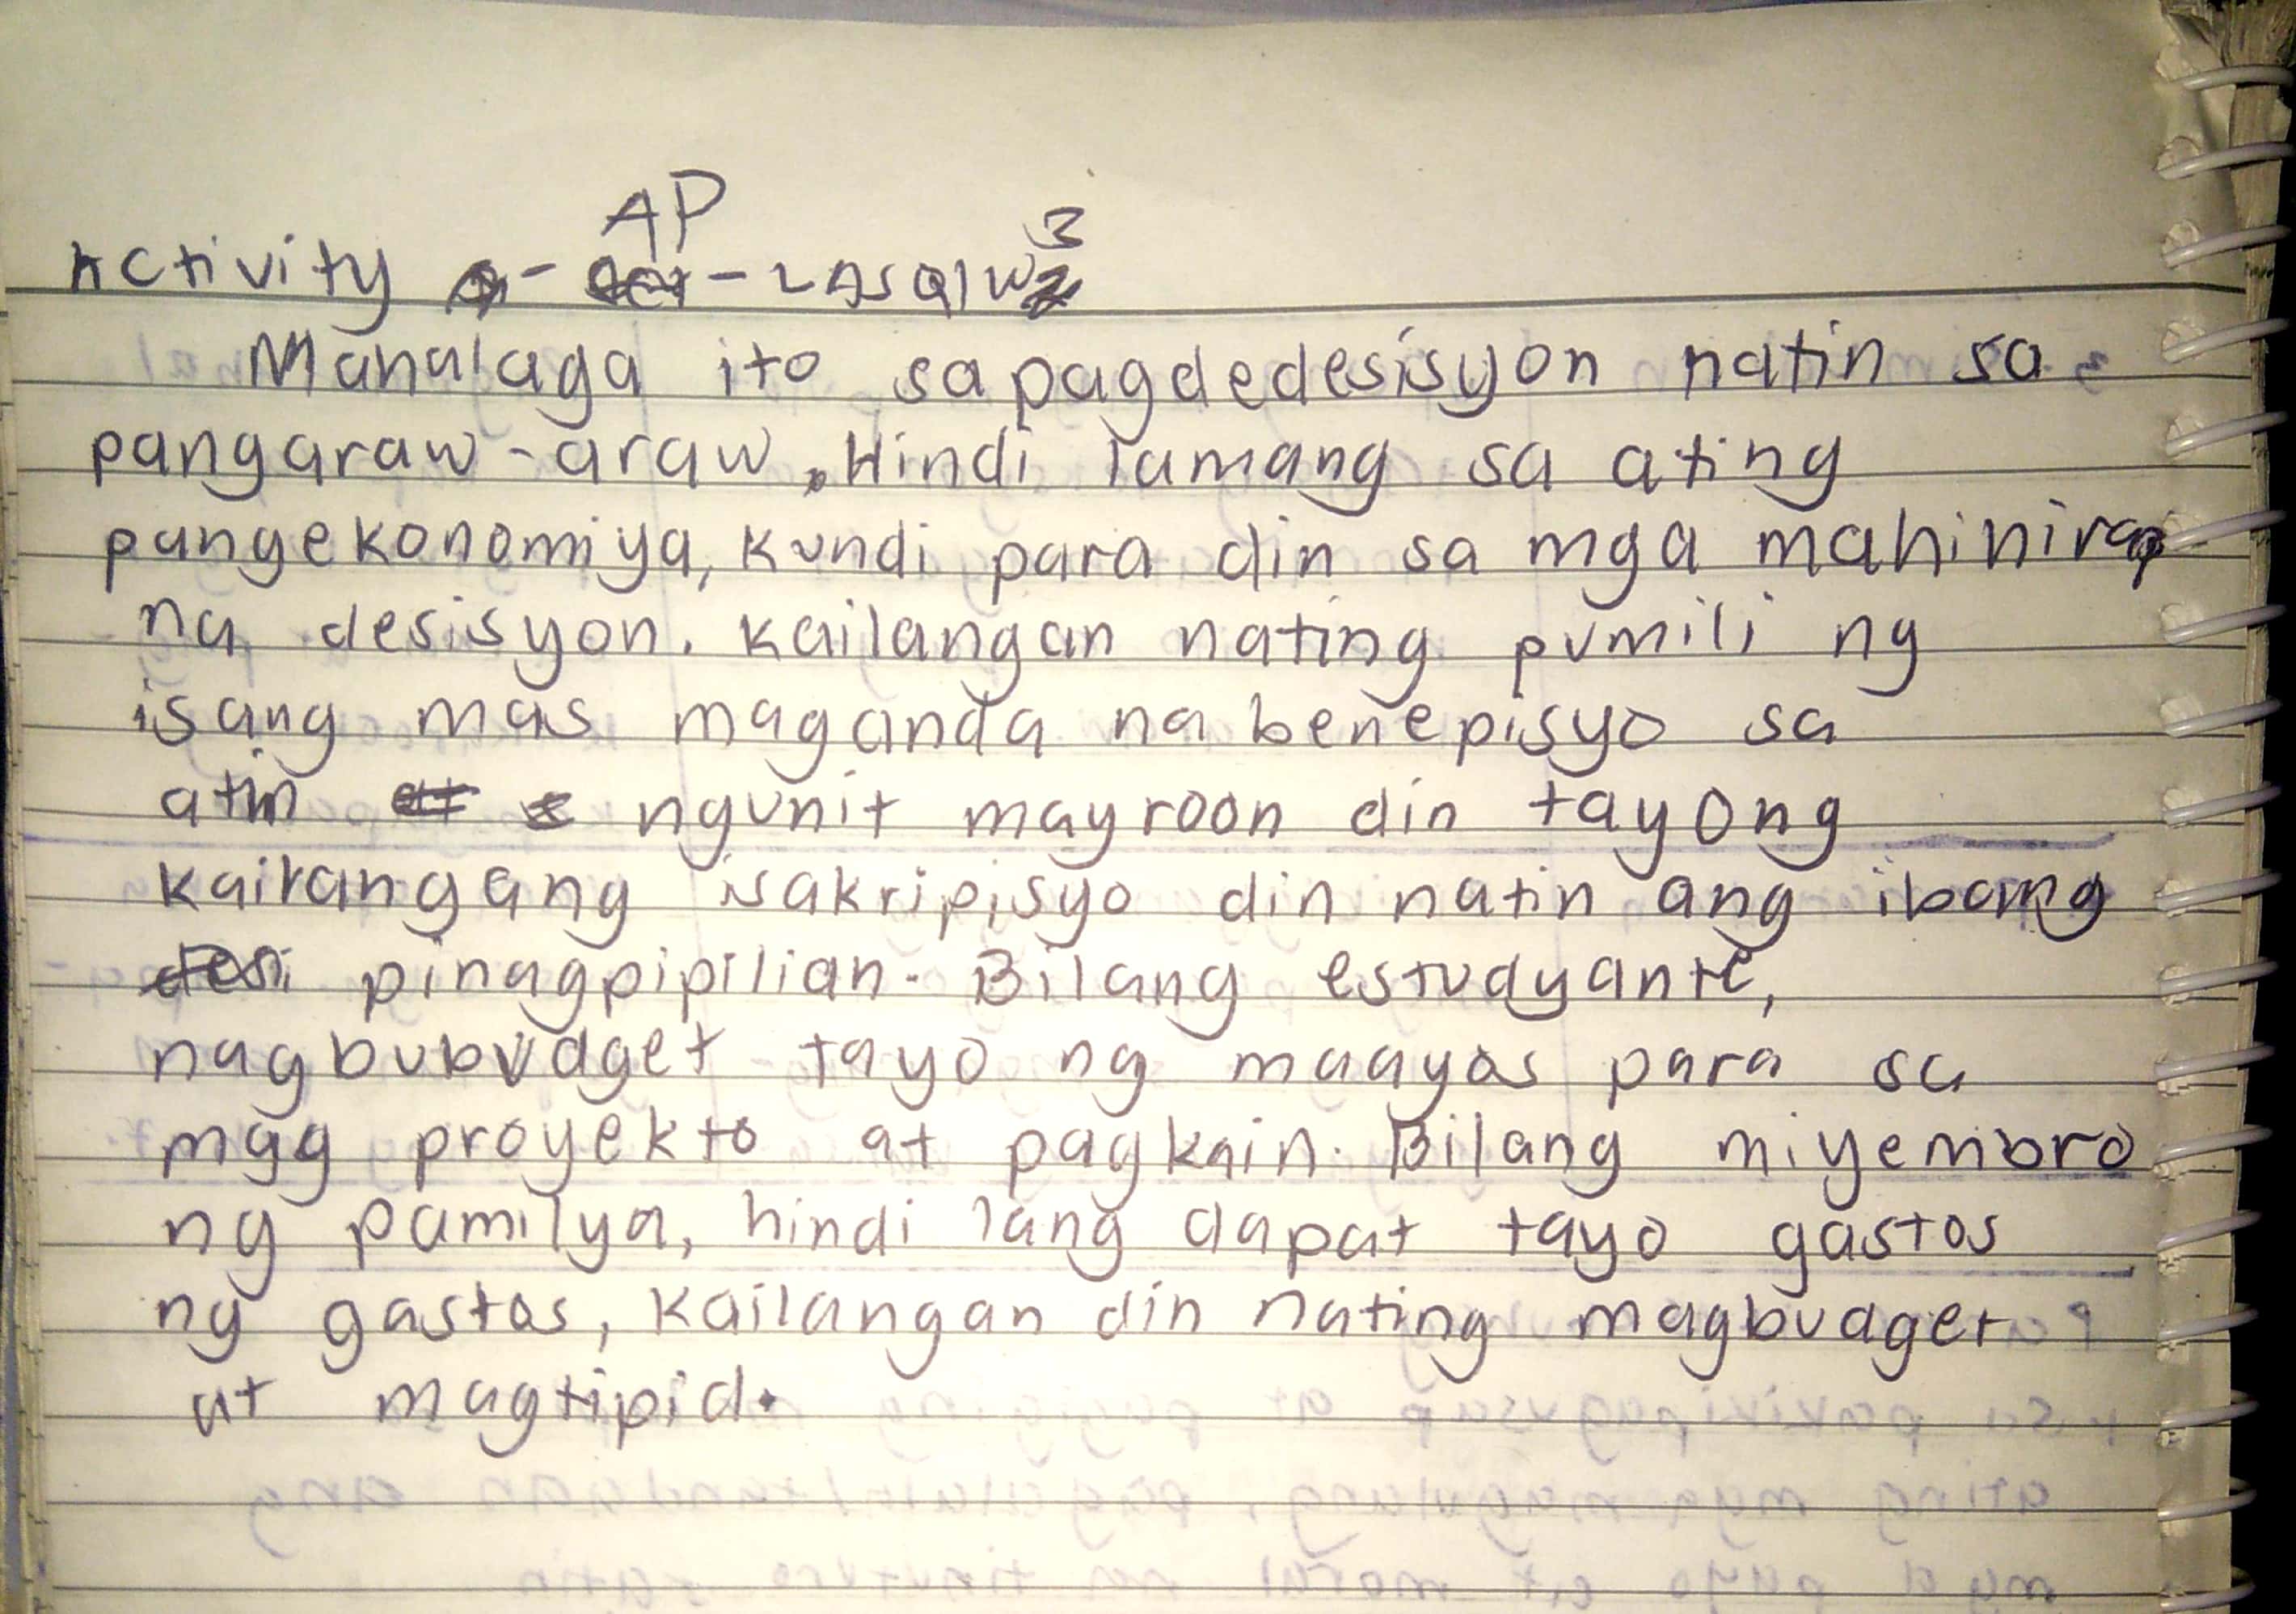 Activity - AP - LAS Q1 W3
Mahalaga ito sa pagdedesisyon natin sa
pangaraw-araw. Hindi lamang sa ating
pangekonomiya, kundi para din sa mga mahihirap
na desisyon. kailangan nating pumili ng
isang mas maganda na benepisyo sa
atin ngunit mayroon din tayong
kailangang isakripisyo din natin ang ibang
pinagpipilian. Bilang estudyante,
nagbubudget tayo ng maayos para sa
mga proyekto at pagkain. Bilang miyembro
ng pamilya, hindi lang dapat tayo gastos
ng gastos, kailangan din nating magbudget
at magtipid.